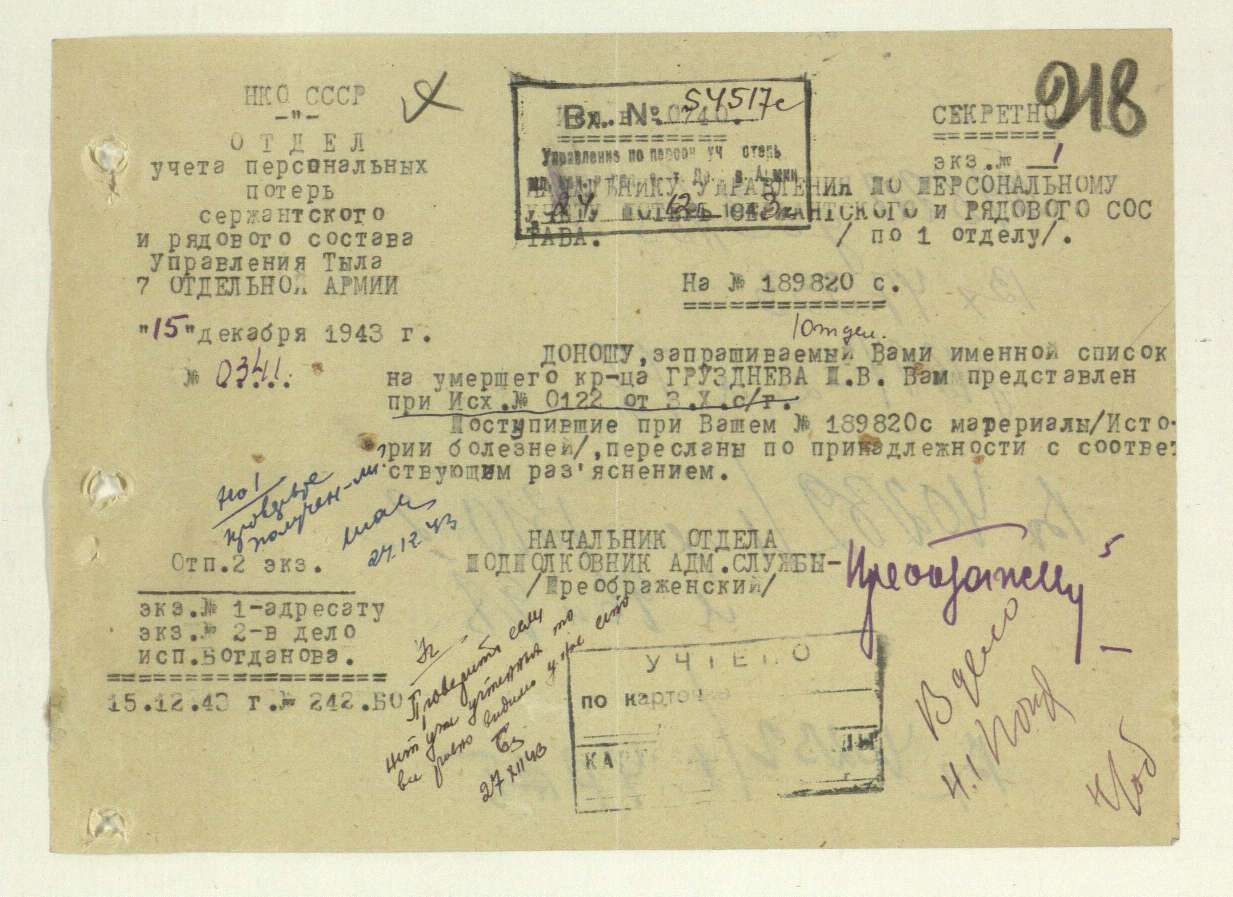 НКО СССР
-"-
ОТДЕЛ
учета персональных
потерь
сержантского
и рядового состава
Управления Тыла
7 ОТДЕЛЬНОЙ АРМИИ
"15" декабря 1943 г.
№ 0341.
Вх. №: 54517с
Управление по персон уч
24 12 1943
СЕКРЕТНО
918
экз.№ 1
НАЧАЛЬНИКУ УПРАВЛЕНИЯ ПО ПЕРСОНАЛЬНОМУ
УЧЕТУ ПОТЕРЬ СЕРЖАНТСКОГО И РЯДОВОГО СОС
ТАВА. / по 1 отделу/.
На № 189820 с.
1 отдел.
ДОНОШУ, запрашиваемый Вами именной список
на умершего кр-ца ГРУЗДНЕВА П.В. Вам представлен
при Исх.№ 0122 от 3.X.с/г.
Поступившие при Вашем № 189820с материалы/Исто-
рии болезней/,пересланы по принадлежности с соответ
ствующим раз'яснением.
но1
проверьте
получен-ли?
27.12.43
НАЧАЛЬНИК ОТДЕЛА
ПОДПОЛКОВНИК АДМ.СЛУЖБЫ-
/Преображенский/
Отп.2 экз.
экз.№ 1-адресату
экз.№ 2-в дело
исп.Богданова.
15.12.43 г.№ 242.БО
Проверить если
нет уже учтенных то
все равно видимо уже
27 XII 43
УЧТЕНО
по карточ
КАР
В дело